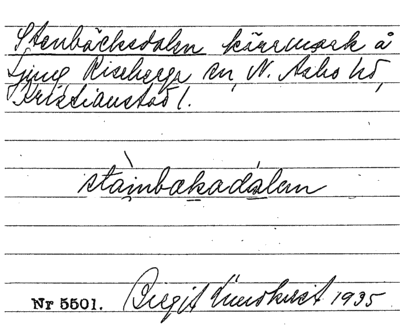 Stenbäcksdalen kärrmark å
Ljung Riseberga sn, N. Åsbo hd,
Kristianstad l.
stàinbakadálen
Nr 5501. Birgit Lundkvist 1935